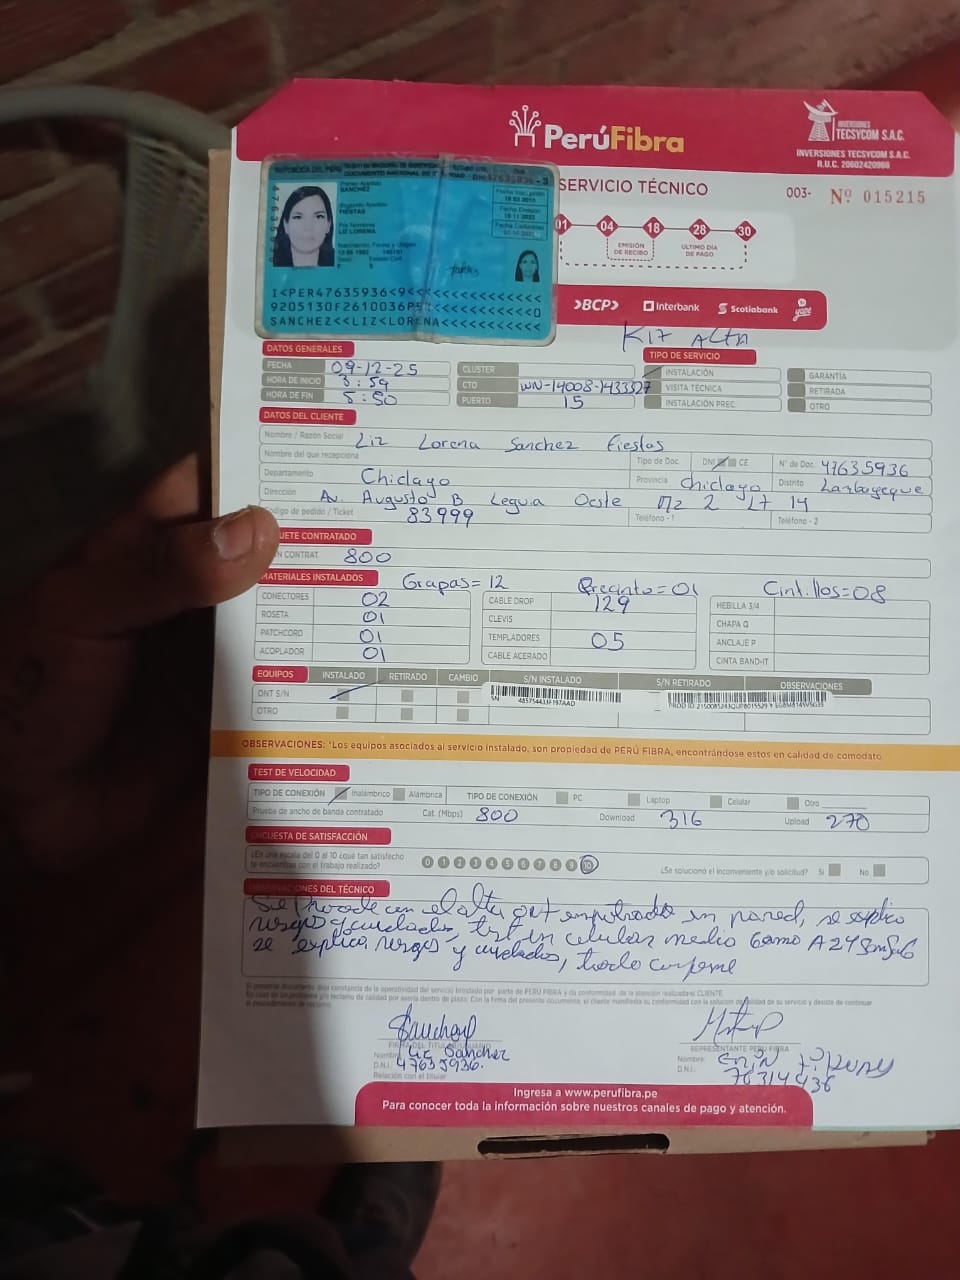 PerúFibra
INVERSIONES
TECSYCOM S.A.C.
INVERSIONES TECSYCOM S.A.C.
R.U.C. 20602420966
SERVICIO TÉCNICO
003- Nº 015215
REPUBLICA DEL PERÚ
Primer Apellido
SANCHEZ
Segundo Apellido
FIESTAS
Pre Nombres
LIZ LORENA
I<PER47635936<9<<<<<<<<<<<<<<<
SANCHEZ<<LIZ<LORENA<<<<<<<<<<<
01 04 18 28 30
EMISIÓN DE RECIBO
ÚLTIMO DÍA DE PAGO
BCP Interbank Scotiabank yape
Kit Alta
DATOS GENERALES
TIPO DE SERVICIO
FECHA 09-12-25 CLUSTER INSTALACIÓN GARANTIA
HORA DE INICIO 3:59 CTO WN-14008-1433327 VISITA TÉCNICA RETIRADA
HORA DE FIN 5:50 PUERTO 15 INSTALACIÓN PREC. OTRO
DATOS DEL CLIENTE
Nombre / Razón Social Liz Lorena Sanchez Fiestas
Nombre del que recepciona Tipo de Doc. DNI CE N° de Doc. 47635936
Departamento Chiclayo Provincia Chiclayo Distrito Lambayeque
Dirección Av. Augusto B Leguia Oeste Mz 2 Lt 14
Código de pedido / Ticket 83999 Teléfono - 1 Teléfono - 2
UETE CONTRATADO
N CONTRAT. 800
MATERIALES INSTALADOS Grapas=12 Precinto=01 Cintillos=08
CONECTORES 02 CABLE DROP 129 HEBILLA 3/4
ROSETA 01 CLEVIS CHAPA Q
PATCHCORD 01 TEMPLADORES 05 ANCLAJE P
ACOPLADOR 01 CABLE ACERADO CINTA BAND-IT
EQUIPOS INSTALADO RETIRADO CAMBIO S/N INSTALADO S/N RETIRADO OBSERVACIONES
ONT S/N SN 48575443F197AAD
OTRO
OBSERVACIONES: *Los equipos asociados al servicio instalado, son propiedad de PERÚ FIBRA, encontrándose estos en calidad de comodato
TEST DE VELOCIDAD
TIPO DE CONEXIÓN Inalámbrico Alámbrica TIPO DE CONEXIÓN PC Laptop Celular Otro
Prueba de ancho de banda contratado Cat. (Mbps) 800 Download 316 Upload 270
ENCUESTA DE SATISFACCIÓN
¿En una escala del 0 al 10 ¿qué tan satisfecho
te encuentras con el trabajo realizado? 0 1 2 3 4 5 6 7 8 9 10 ¿Se solucionó el inconveniente y/o solicitud? Si No
OBSERVACIONES DEL TÉCNICO
Se Procede con el alta ont empotrado en pared, se explico
riesgos y cuidados, test en celular medio Gama A24 Samsung
se explica riesgos y cuidados, todo conforme
Si presente documento deja constancia de la operatividad del servicio brindado por parte de PERÚ FIBRA y da conformidad de la atención realizada al CLIENTE
Sanchez
FIRMA DEL TITULAR
REPRESENTANTE PERÚ FIBRA
Nombre: Liz Sanchez
D.N.I. 47635936.
Relación con el titular
Nombre:
D.N.I. 76314436
Ingresa a www.perufibra.pe
Para conocer toda la información sobre nuestros canales de pago y atención.